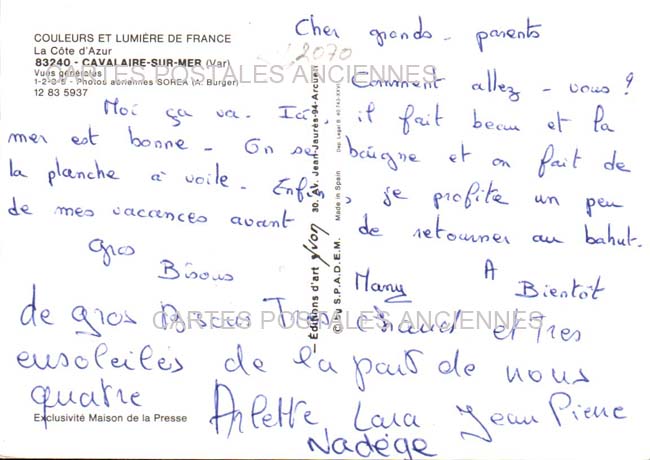 COULEURS ET LUMIÈRE DE FRANCE
La Côte d'Azur
83240 - CAVALAIRE-SUR-MER (Var)
Vues générales
1-2-3-5 - Photos aériennes SOREA (A. Burger)
12 83 5937
2070
CARTES POSTALES ANCIENNES
Cher grands-parents
Comment allez-vous ?
Moi ça va. Ici, il fait beau et la
mer est bonne - On se baigne et on fait de
la planche à voile - Enfin, je profite un peu
de mes vacances avant de retourner au bahut.
Gros Bisous
A Bientôt
Many
de gros Bisous Très chaud et Très
ensoleilés de la part de nous
quatre Arlette Lara Jean Pierre
Nadège
CARTES POSTALES ANCIENNES
Editions d'art yvon 30, Av. Jean-Jaurès-94-Arcueil
© by S.P.A.D.E.M. Made in Spain
Exclusivité Maison de la Presse